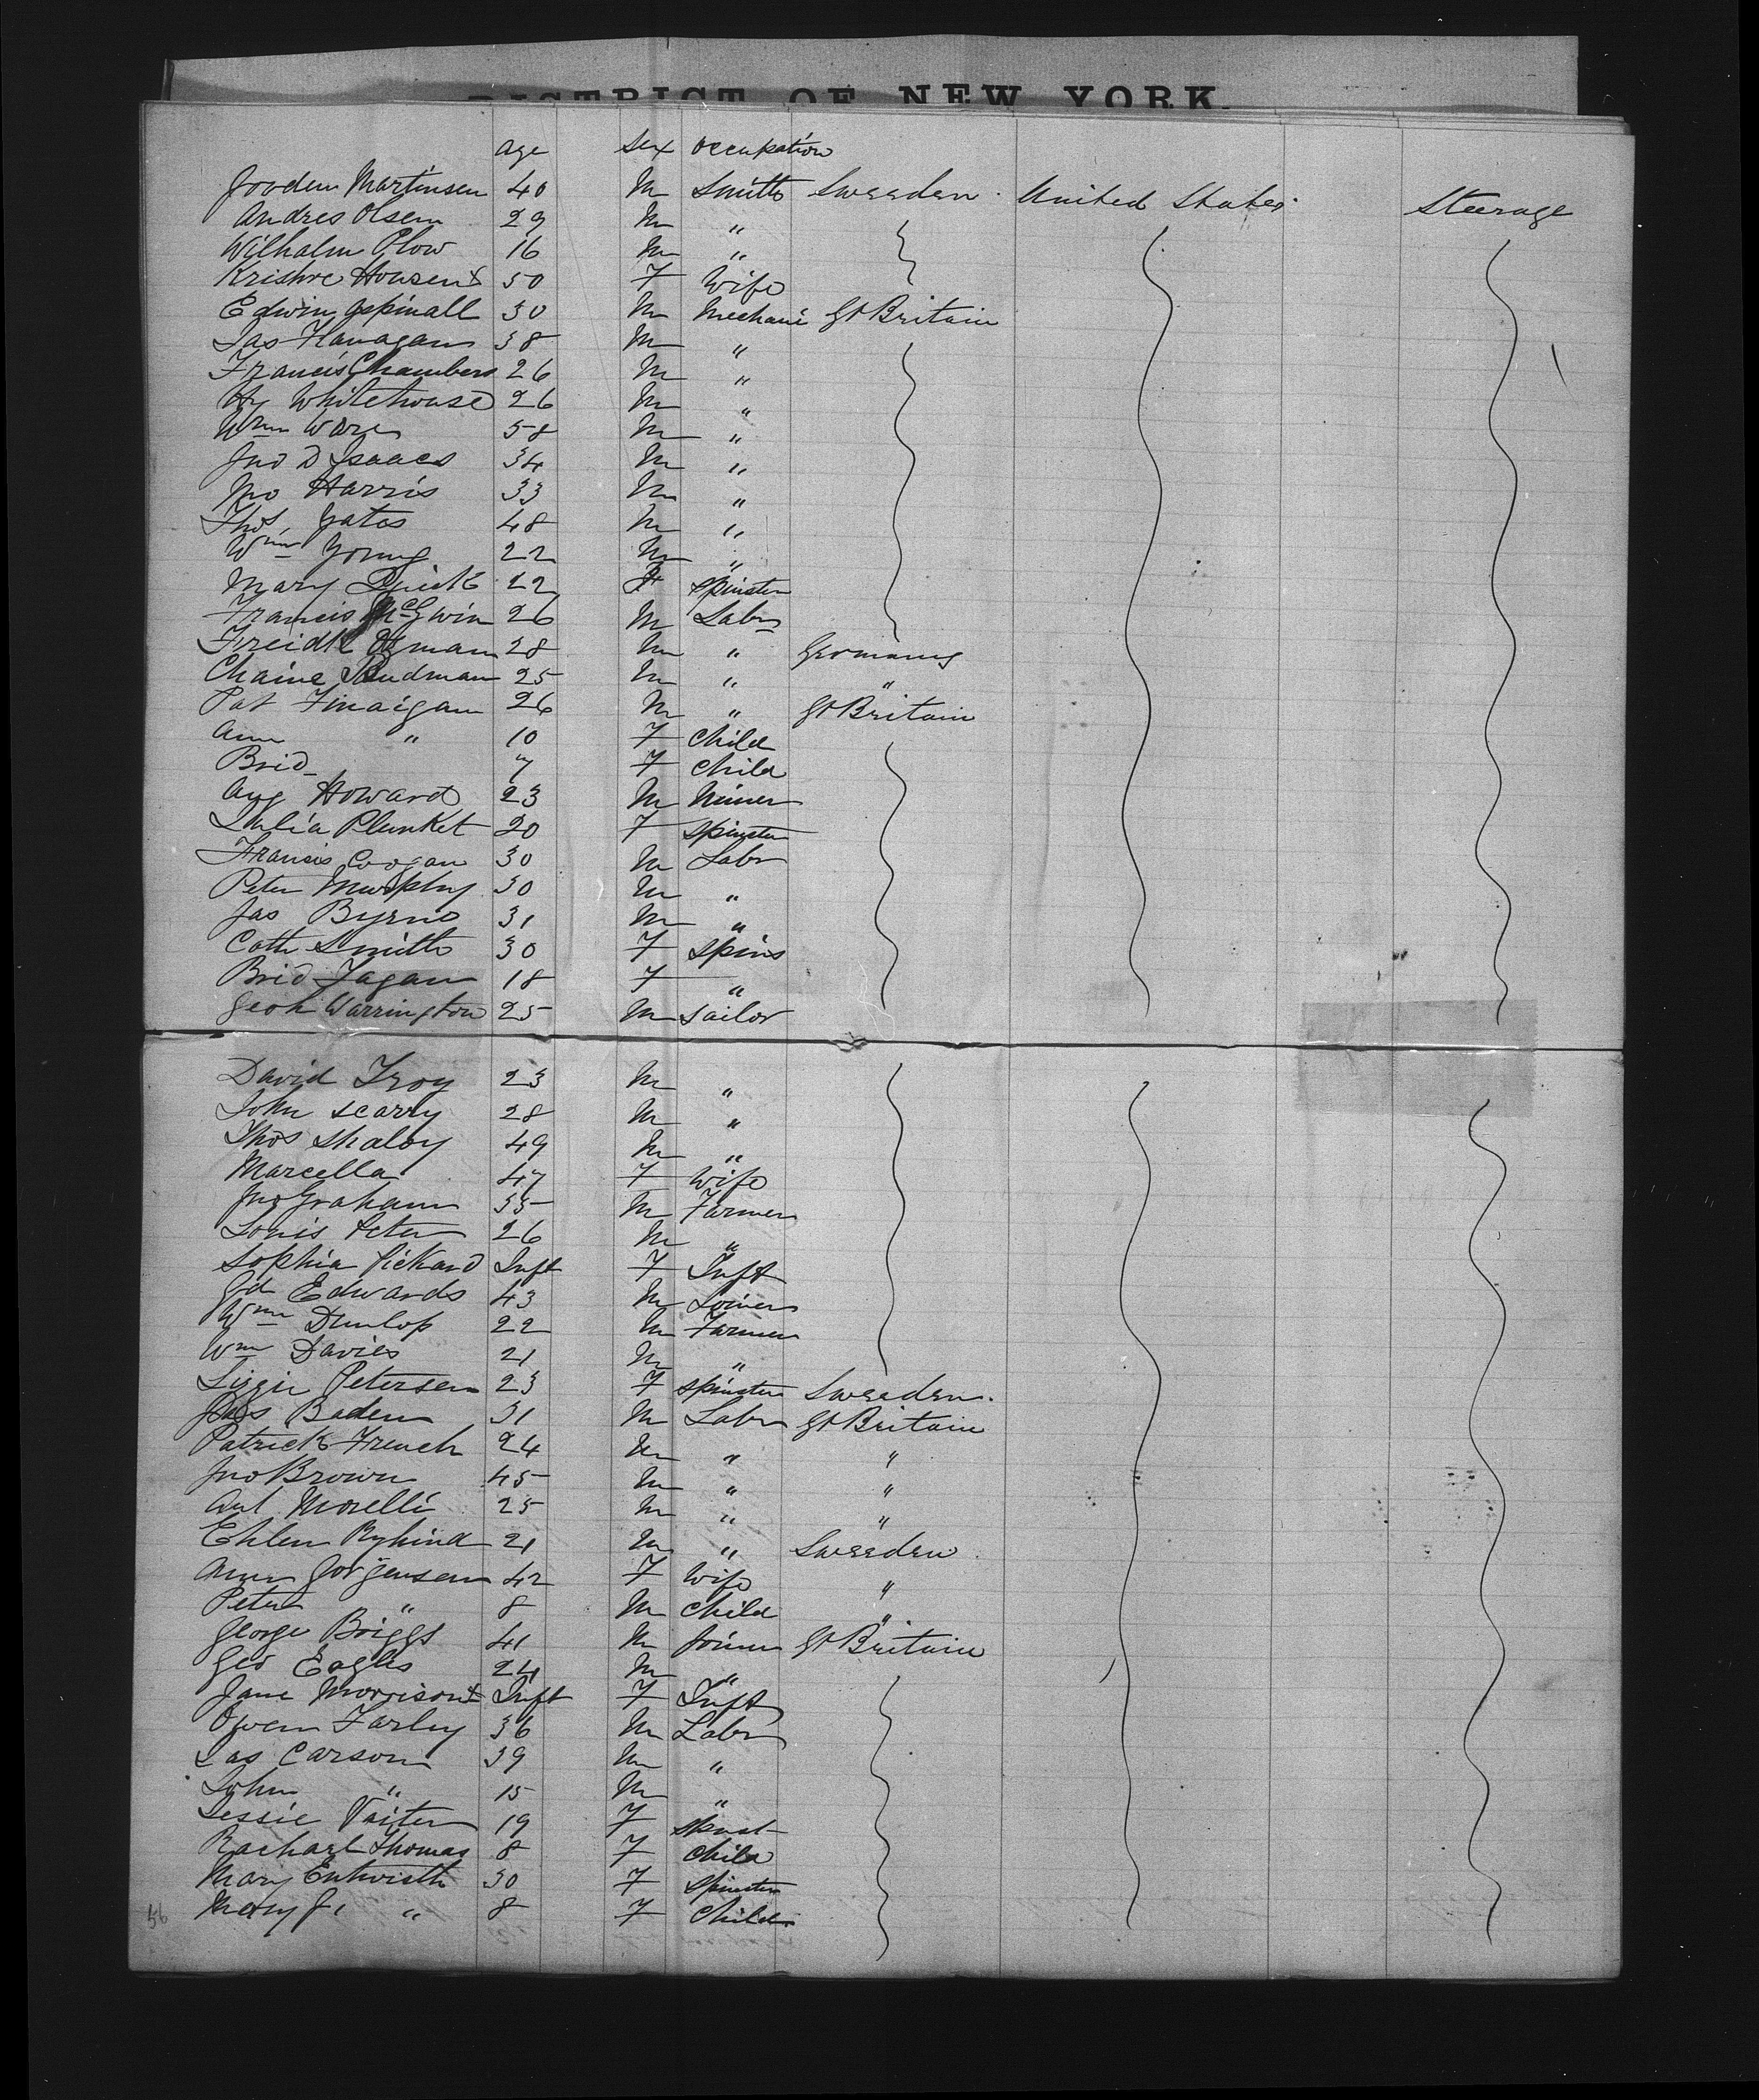 DISTRICT OF NEW YORK.
age sex occupation
Jorden Martinsen 40 M Smith Sweeden United States Steerage
Andres Olsen 29 M "
Wilhalm Plow 16 M "
Krishve Housen x 50 F Wife
Edwin Aspinall 30 M Mechanic Gt Britain
Jas Flanagan 38 M "
Francis Chambers 26 M "
Hy Whitehouse 26 M "
Wm Ware 58 M "
Jno D Isaacs 34 M "
Jno Harris 33 M "
Thos Yates 48 M "
Wm Young 22 M "
Mary Quick 22 F Spinster
Francis McGwin 26 M Labr
Freidk Ogman 28 M " Germany
Chaine Sandman 25 M " "
Pat Finaigan 26 M " Gt Britain
Ann " 10 F Child
Brid 7 F Child
Aug Howard 23 M Miner
Julia Plunket 20 F Spinster
Francis Coogan 30 M Labr
Peter Murphy 30 M "
Jas Byrne 31 M "
Cath Smith 30 F Spins
Brid Fagan 18 F "
Geo H Warrington 25 M Sailor
David Troy 23 M "
John Scarry 28 M "
Thos Shaloy 49 M "
Marcella 47 F Wife
Jno Graham 35 M Farmer
Louis Peter 26 M "
Sophia Pickard Inft F Inft
Ed Edwards 43 M Joiner
Wm Dunlop 22 M Farmer
Wm Davies 21 M "
Lizzie Petersen 23 F Spinster Sweeden.
Jas Baden 31 M Labr Gt Britain
Patrick French 24 M " "
Jno Brown 45 M " "
Ant Morelli 25 M " "
Ehlen Ryhind 21 M " Sweeden
Ann Jorgensen 42 F Wife "
Peter " 8 M Child "
George Briggs 41 M Joiner Gt Britain
Geo Eagles 24 M "
Jane Morrison x Inft F Inft
Owen Farley 36 M Labr
Jas Carson 39 M "
John " 15 M "
Jessie Vaiter 19 F Spinst
Rachael Thomas 8 F Child
Mary Entwistle 30 F Spinster
Mary J. " 8 F Child
56